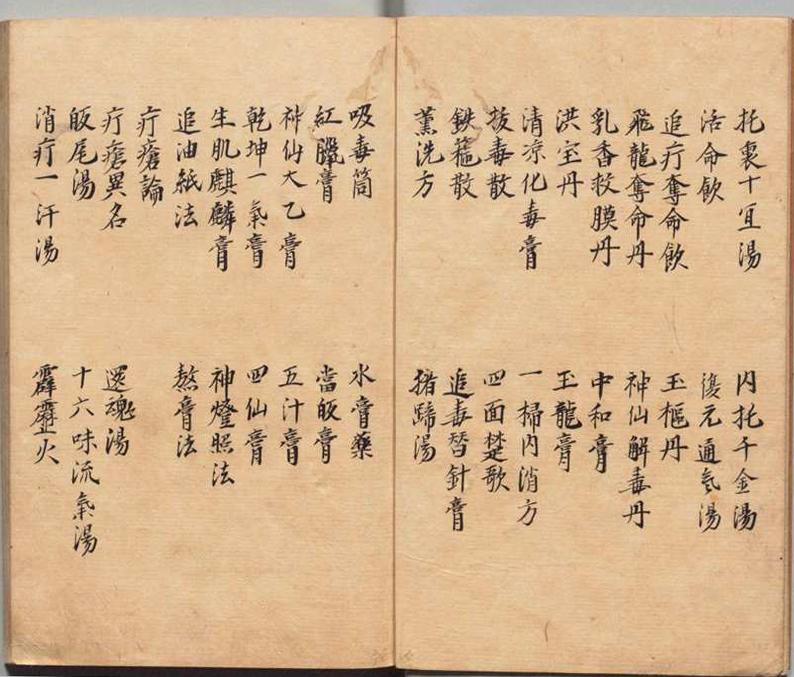 托裏十宜湯 内托千金湯
活命飲 復元通氣湯
追疔奪命飲 玉樞丹
飛龍奪命丹 神仙解毒丹
乳香救膜丹 中和膏
洪宝丹 玉龍膏
清凉化毒膏 一掃内消方
拔毒散 四面楚歌
鉄箍散 追毒替針膏
薰洗方 猪蹄湯
吸毒筒 水膏藥
紅臘膏 當皈膏
神仙大乙膏 五汁膏
乾坤一氣膏 四仙膏
生肌麒麟膏 神燈照法
追油紙法 熬膏法
疔瘡論
疔瘡異名 還魂湯
皈尾湯 十六味流氣湯
消疔一汗湯 霹靂火